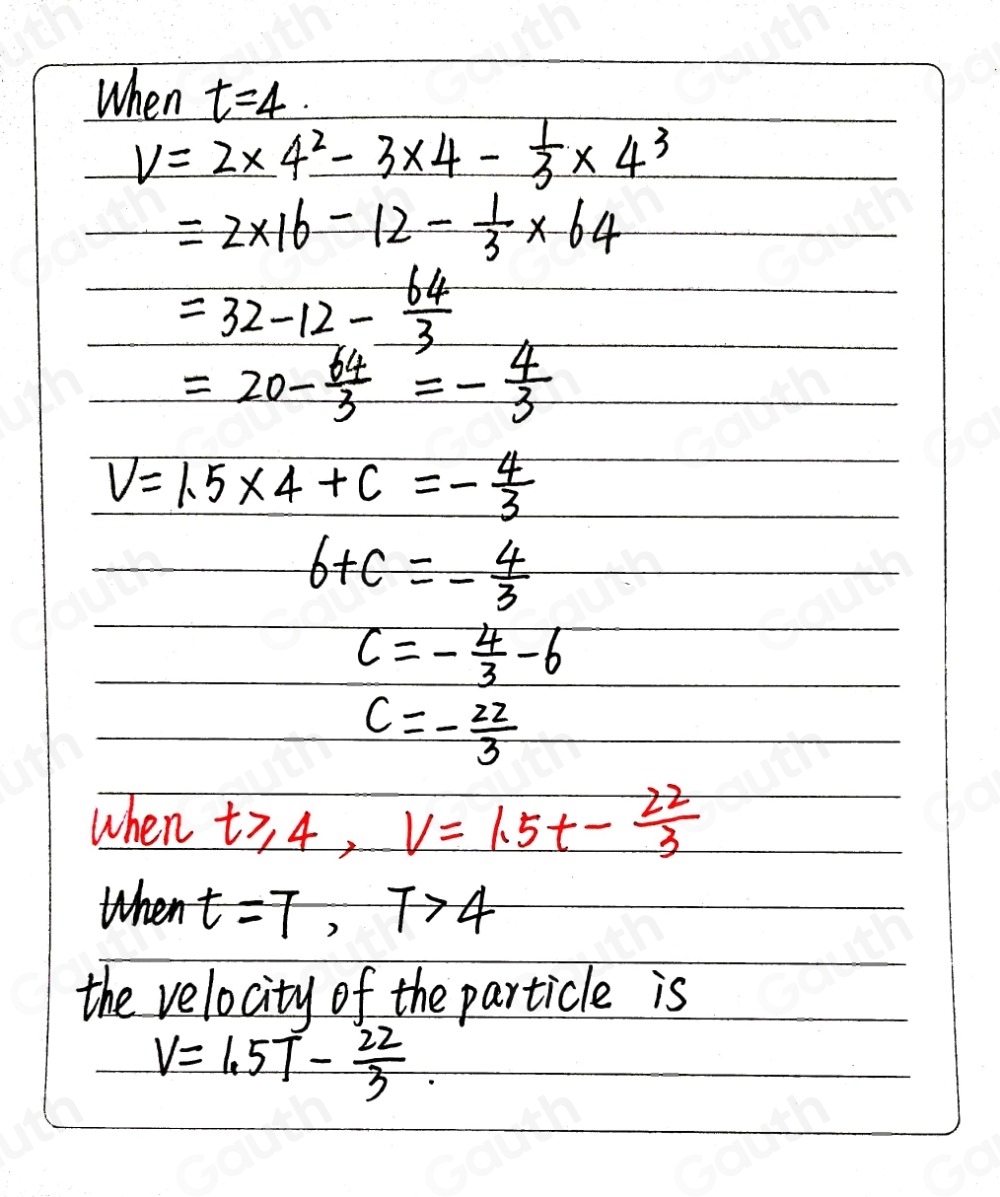 When t=4.
V = 2×4² - 3×4 - 1/3 × 4³
= 2×16 - 12 - 1/3 × 64
= 32-12 - 64/3
= 20 - 64/3 = - 4/3
V = 1.5×4 + C = - 4/3
6+C = - 4/3
C = - 4/3 - 6
C = - 22/3
when t⩾4, V = 1.5t - 22/3
When t = T, T>4
the velocity of the particle is
V = 1.5T - 22/3.